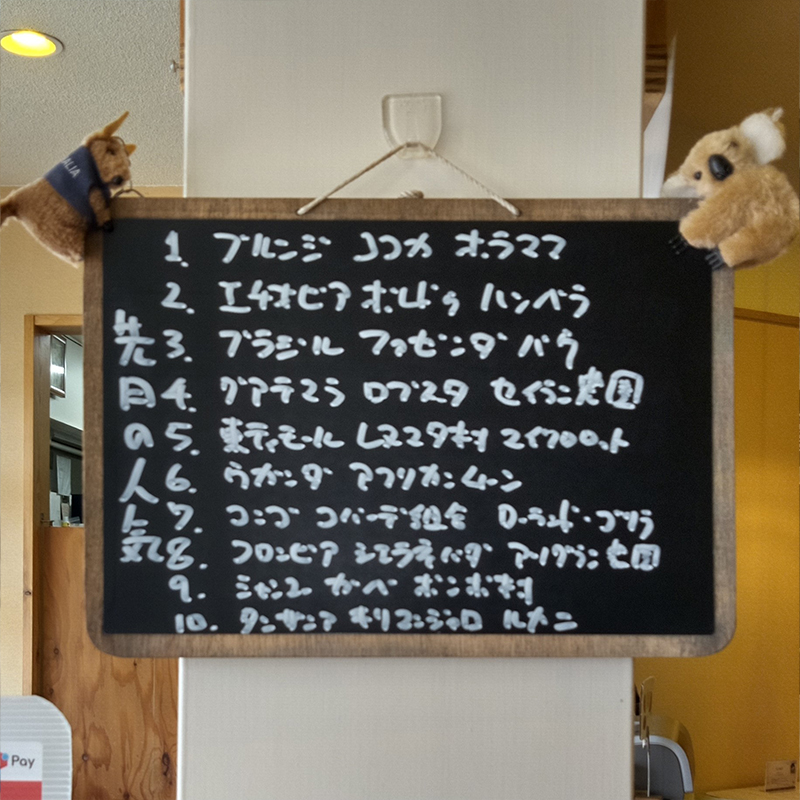 先月の人気
1. ブルンジ JJカ オラママ
2. エチオピア ボレナ ハンベラ
3. ブラジル ファゼンダ バウ
4. グアテマラ ロブスタ セイラン農園
5. 東ティモール レストタ村 マイクロロット
6. ウガンダ アフリカンムーン
7. コンゴ コパーデ組合 ローランド・ゴリラ
8. コロンビア シエラネバダ アーリグラン農園
9. ミャンマー ガベ ボンボ村
10. タンザニア キリマンジャロ ルカニ
ALIA
Pay